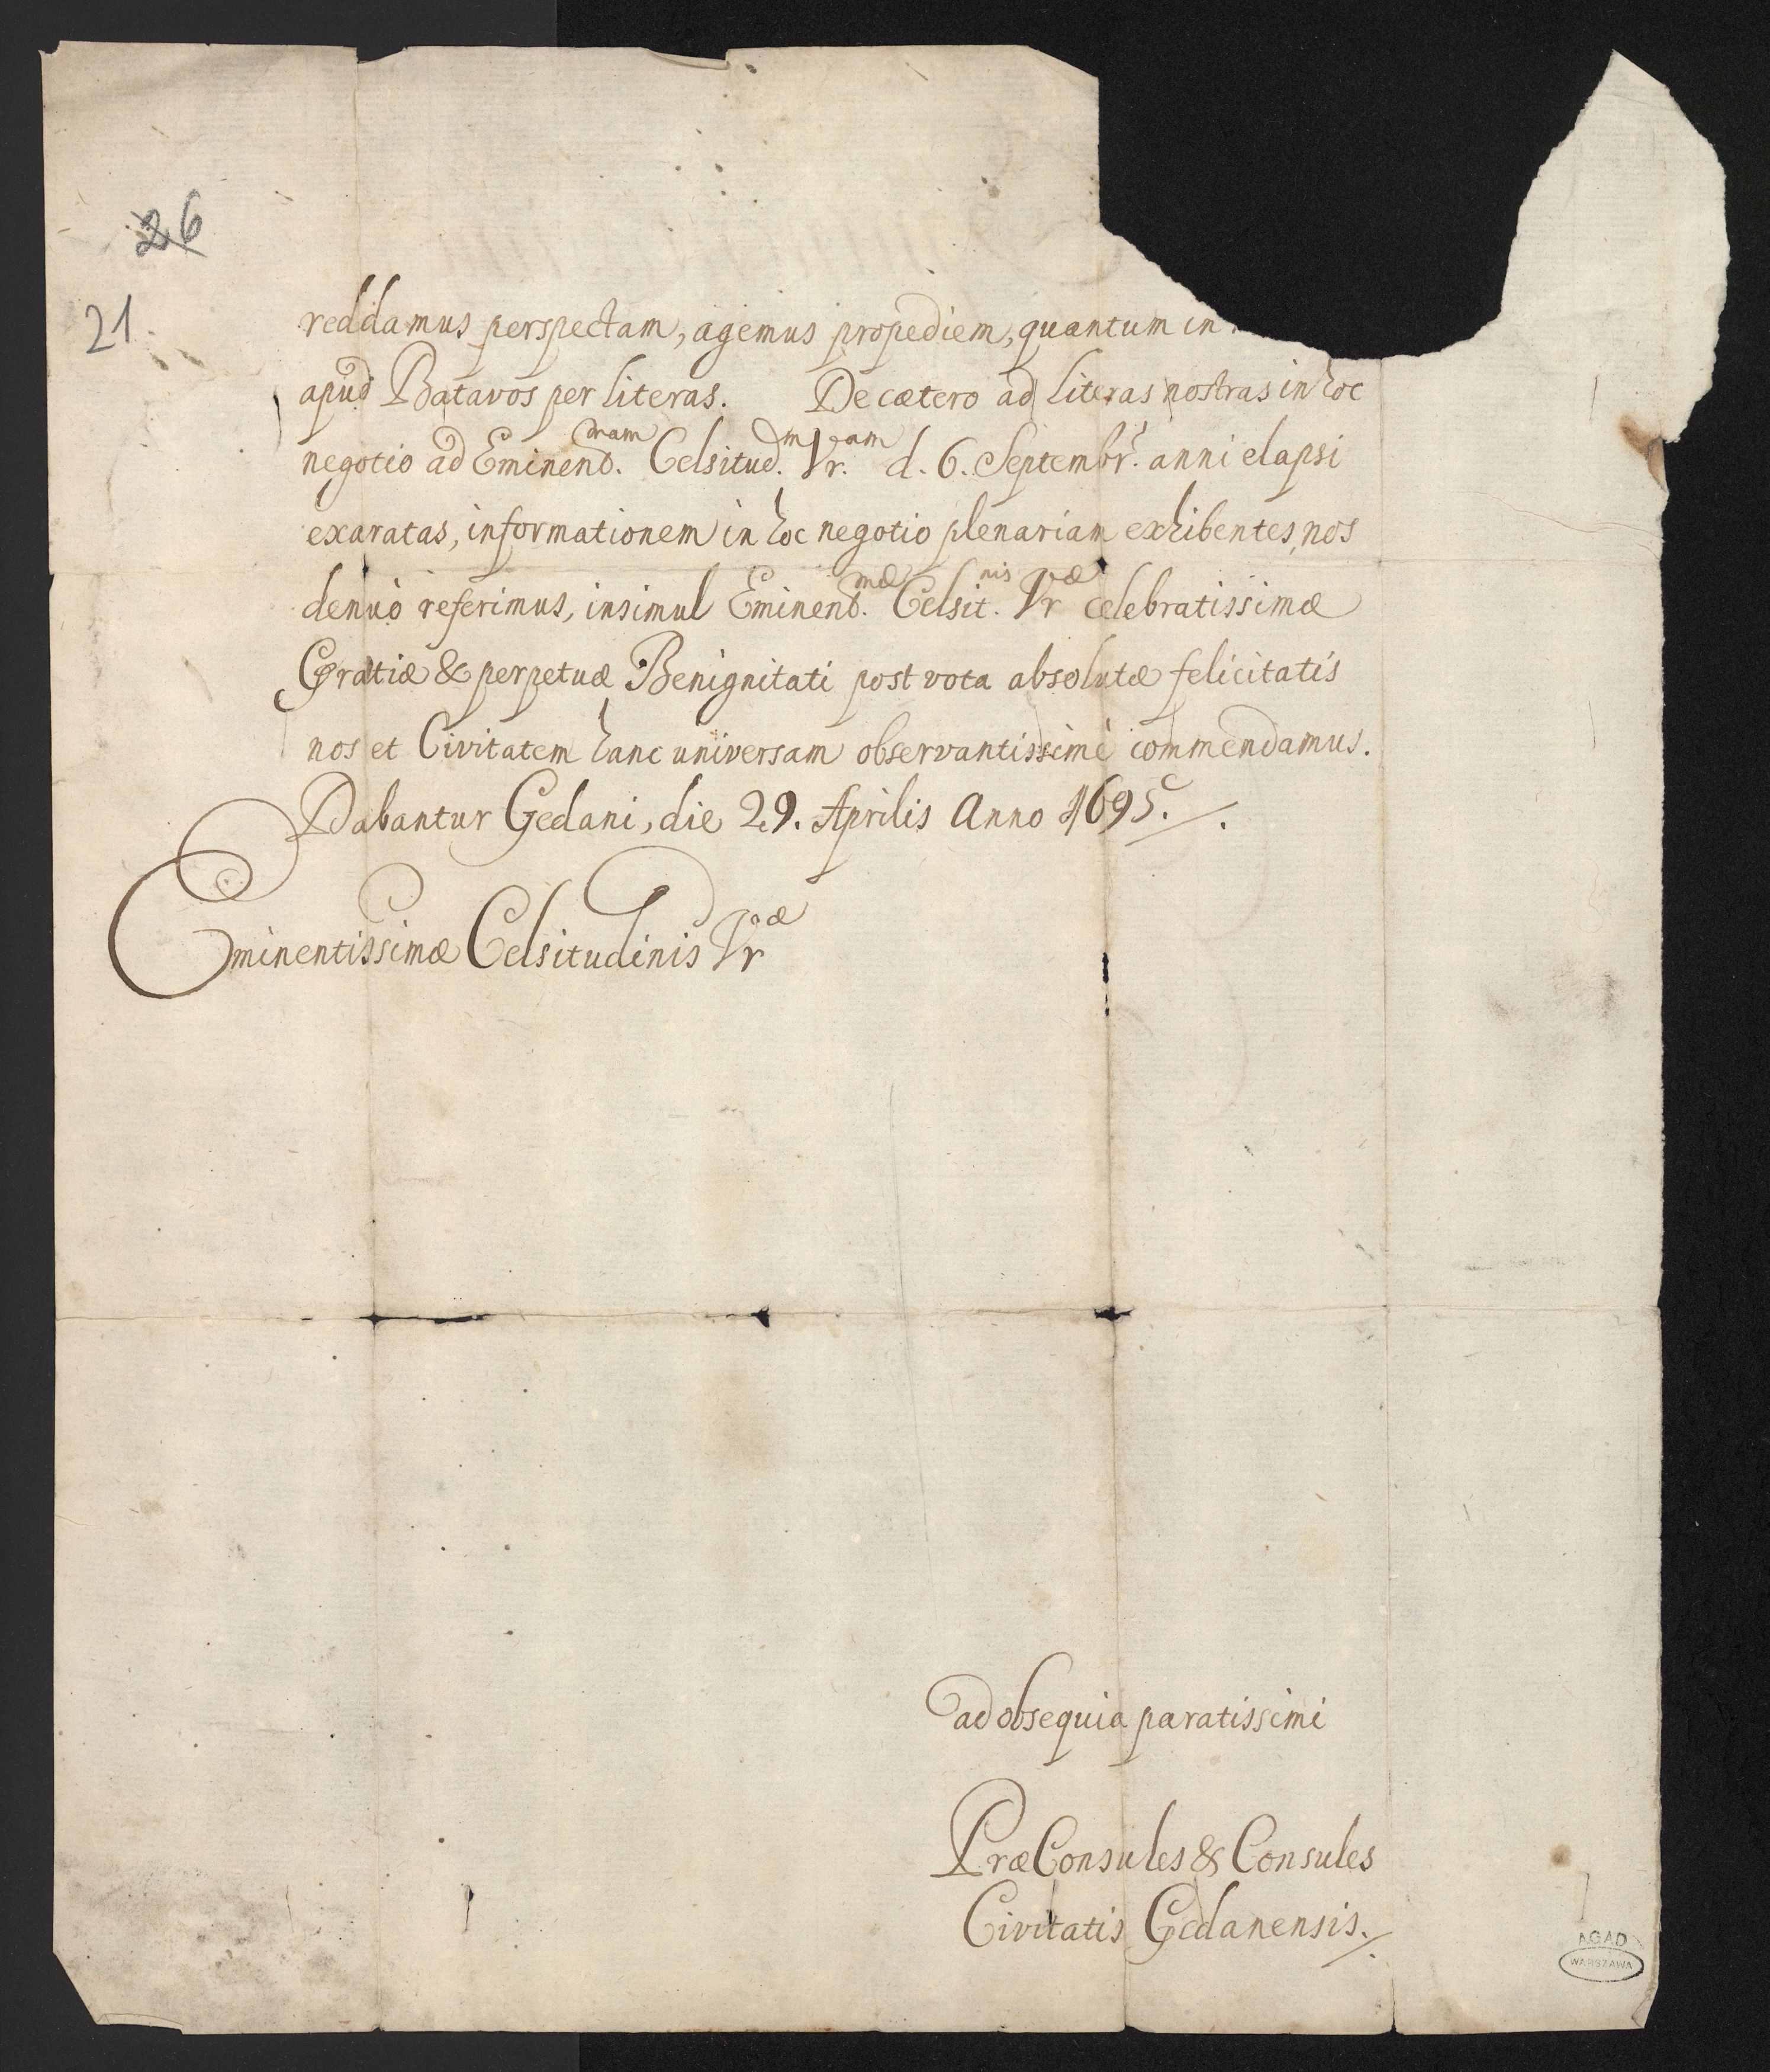 26
21.
reddamus perspectam, agemus propediem, quantum in
apud Batavos per literas. De cætero ad literas nostras in hoc
negotio ad Eminent.mam Celsitud.m Vr.am d. 6. Septembr. anni elapsi
exaratas, informationem in hoc negotio plenariam exhibentes, nos
denuò referimus, insimul Eminent.mæ Celsit.nis Vræ celebratissimæ
Gratiæ & perpetuæ Benignitati post vota absolutæ felicitatis
nos et Civitatem hanc universam observantissimè commendamus.
Dabantur Gedani, die 29. Aprilis Anno 1695.
Eminentissimæ Celsitudinis Vræ
ad obsequia paratissimi
PræConsules & Consules
Civitatis Gedanensis.
AGAD
WARSZAWA